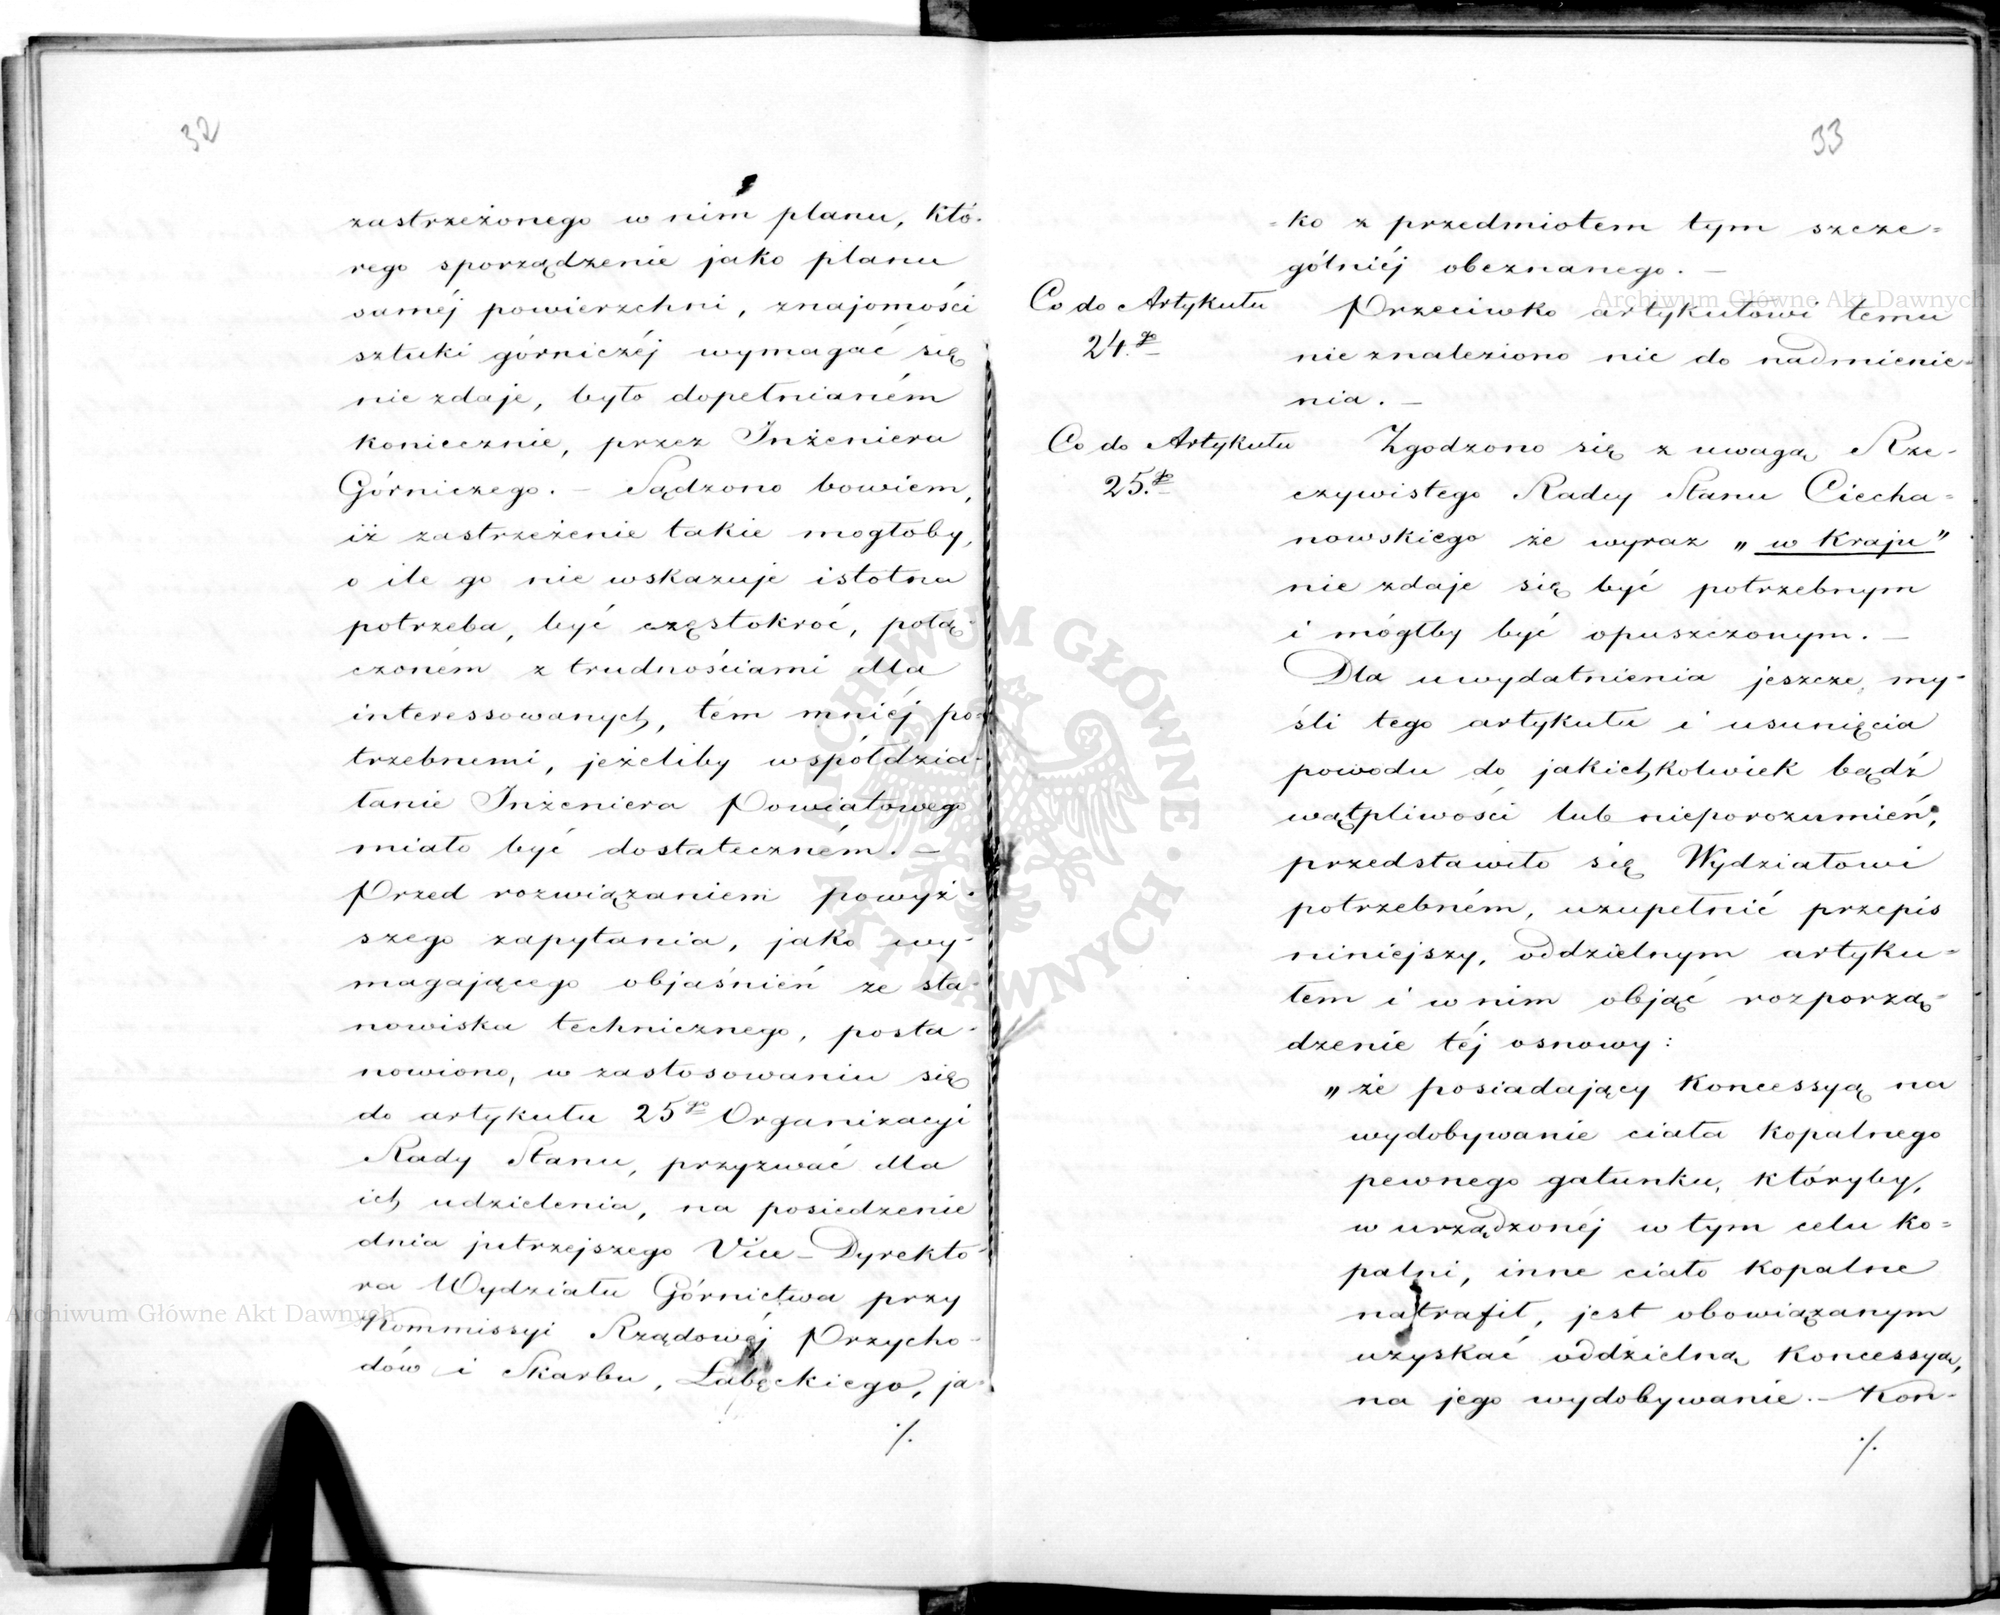 32
zastrzeżonego w nim planu, któ-
rego sporządzenie jako planu
saméj powierzchni, znajomości
sztuki górniczéj wymagać się
nie zdaje, było dopełnianém
koniecznie, przez Inżeniera
Górniczego. – Sądzono bowiem,
iż zastrzeżenie takie mogłoby,
o ile go nie wskazuje istotna
potrzeba, być częstokroć, połą-
czoném z trudnościami dla
interessowanych, tém mniéj po-
trzebnemi, jeżeliby współdzia-
łanie Inżeniera Powiatowego
miało być dostateczném. –
Przed rozwiązaniem powyż-
szego zapytania, jako wy-
magającego objaśnień ze sta-
nowiska technicznego, posta-
nowiono, w zastosowaniu się
do artykułu 25go Organizacyi
Rady Stanu, przyzwać dla
ich udzielenia, na posiedzenie
dnia jutrzejszego Vice-Dyrekto-
ra Wydziału Górnictwa przy
Kommissyi Rządowéj Przycho-
dów i Skarbu, Łabęckiego, ja-
./.
33
-ko z przedmiotem tym szcze-
gólniéj obeznanego. –
Co do Artykułu
24.go
Przeciwko artykułowi temu
nie znaleziono nic do nadmienie-
nia. –
Co do Artykułu
25.go
Zgodzono się z uwagą Rze-
czywistego Radcy Stanu Ciecha-
nowskiego że wyraz „w Kraju”
nie zdaje się być potrzebnym
i mógłby być opuszczonym. –
Dla uwydatnienia jeszcze, my-
śli tego artykułu i usunięcia
powodu do jakichkolwiek bądź
wątpliwości lub nieporozumień,
przedstawiło się Wydziałowi
potrzebném, uzupełnić przepis
niniejszy, oddzielnym artyku-
łem i w nim objąć rozporzą-
dzenie téj osnowy:
„że posiadający Koncessyą na
wydobywanie ciała kopalnego
pewnego gatunku, któryby,
w urządzonéj w tym celu ko-
palni, inne ciało kopalne
natrafił, jest obowiązanym
uzyskać oddzielną Koncessyą,
na jego wydobywanie. – Kon-
./.
Archiwum Główne Akt Dawnych
Archiwum Główne Akt Dawnych
ARCHIWUM GŁÓWNE • AKT DAWNYCH •